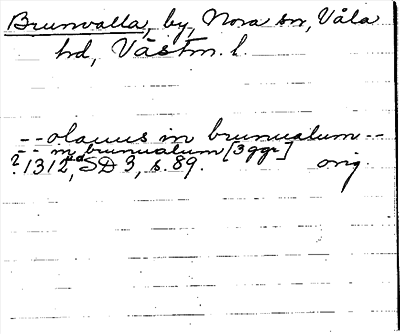 Brunvalla, by, Nora sn, Våla
hd, Västm. l.
-- olauus in brunualum --
-- in brunualum [3 ggr]
?1312, SD 3, s. 89. orig.